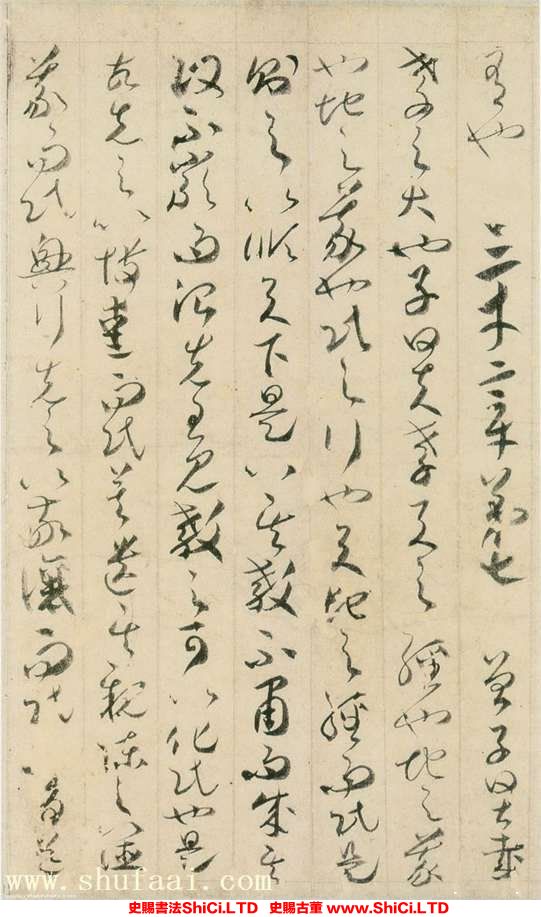 有也 三才章第七 曾子曰甚哉
孝之大也子曰夫孝天之經也地之義
也地之義也民之行也天地之經而民是
則之以順天下是以其教不肅而成其
政不嚴而治先王見教之可以化民也是
故先之以博愛而民莫遺其親陳之以德
義而民興行先之以敬讓而民
www.shufaai.com
史賜書法ShiCi.LTD 史賜古董 www.ShiCi.LTD